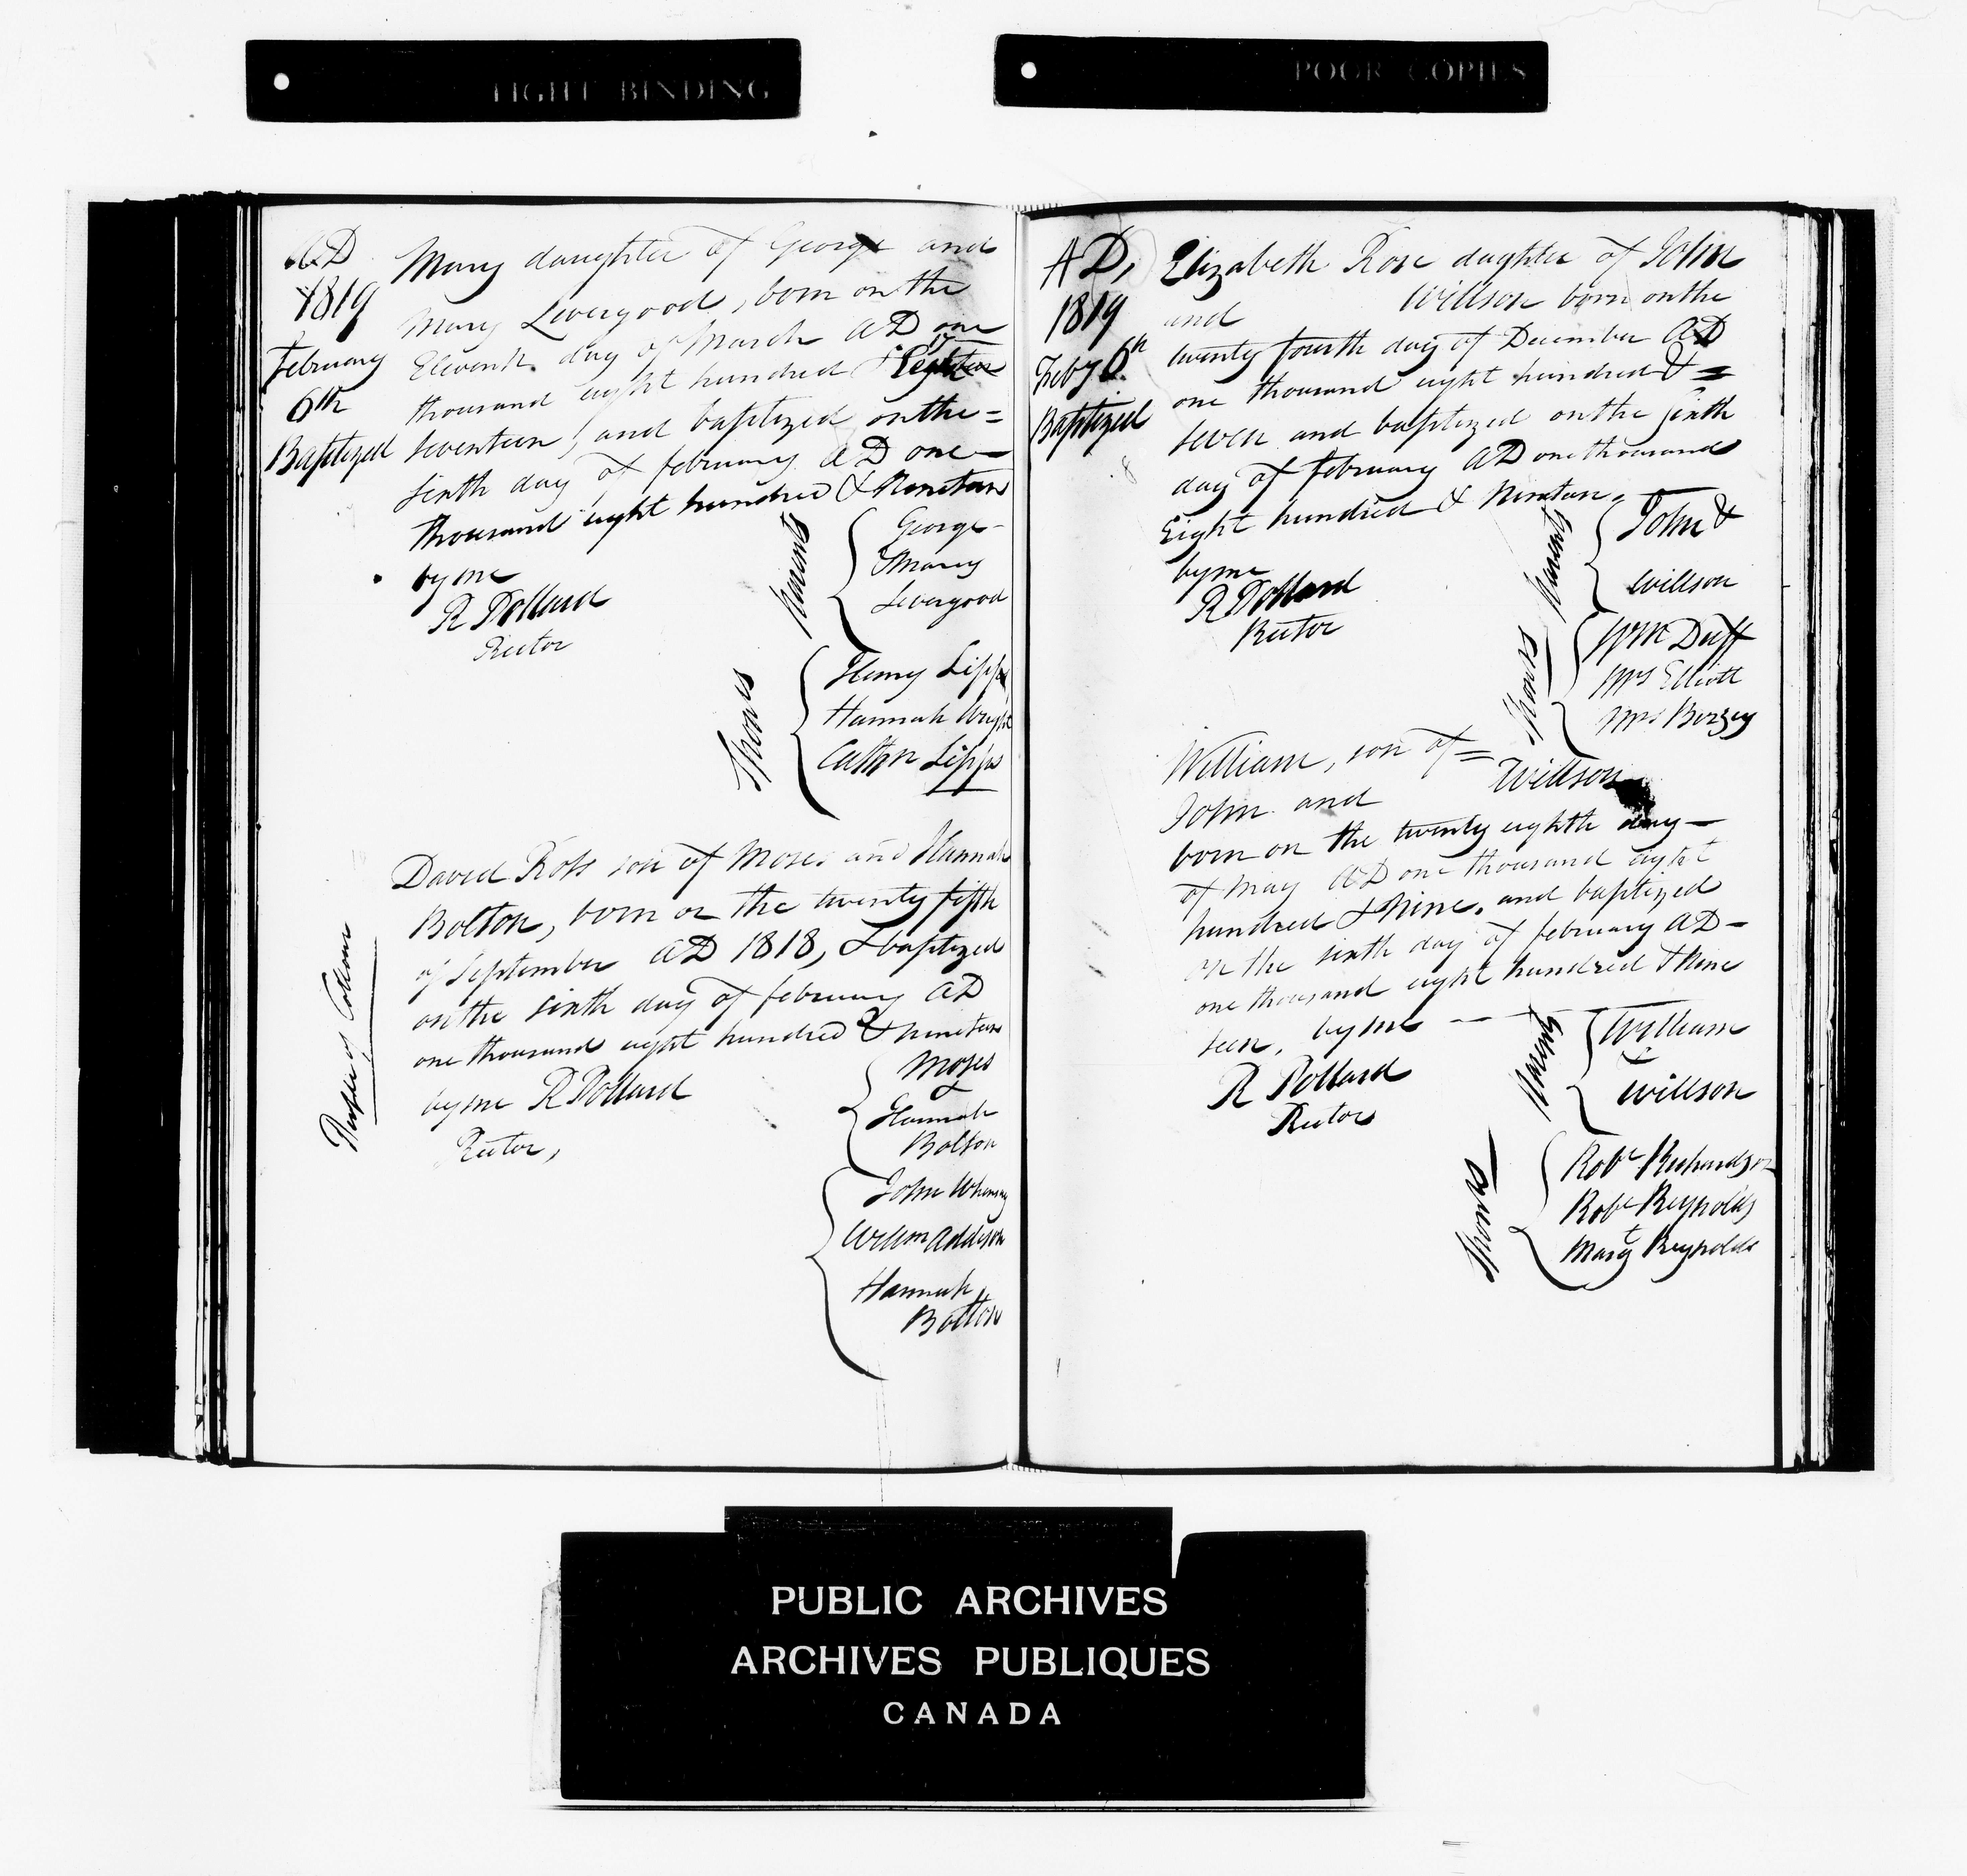 TIGHT BINDING
POOR COPIES
AD
1819
February
6th
Baptized
Mary daughter of George and
Mary Livergood, born on the
Eleventh day of March AD one
thousand eight hundred &
Seventeen, and baptized on the =
sixth day of february AD one —
thousand eight hundred & Nineteen
by me
R Pollard
Rector
Parents
George
& Mary
Livergood
Sponrs
Henry
Hannah Wright
Cathn
People of Colour
David Ross son of Moses and Hannah
Bolton, born on the twenty fifth
of September AD 1818, & baptized
on the sixth day of february AD
one thousand eight hundred & nineteen
by me R Pollard
Rector,
Moses
&
Hannah
Bolton
John
Willm Addison
Hannah
Bolton
AD,
1819
Feby 6th
Baptized
Elizabeth Rose daghter of John
and Willson born on the
twenty fourth day of December AD
one thousand eight hundred & =
seven and baptized on the sixth
day of february AD one thousand
Eight hundred & Nineteen.
by me
R Pollard
Rector
Parents
John &
Willson
Sponrs
Wm Duff
Mrs Elliott
Mrs
William, son of =
John and Willson
born on the twenty eighth day —
of May AD one thousand eight
hundred & Nine, and baptized
on the sixth day of february AD —
one thousand eight hundred & Nine
teen, by me — —
R Pollard
Rector
Parents
William
&
Willson
Sponrs
Robt Richardson
Robt Reynolds
Margt Reynolds
PUBLIC ARCHIVES
ARCHIVES PUBLIQUES
CANADA